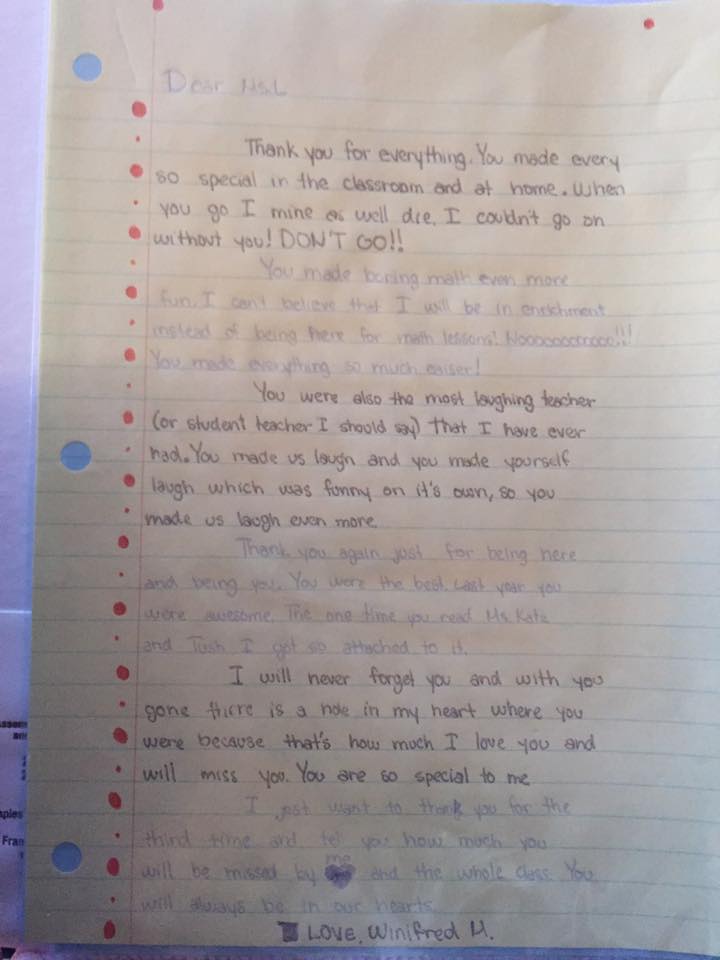 Dear Ms.L
Thank you for everything. You made every
so special in the classroom and at home. When
you go I mine as well die. I couldn't go on
without you! DON'T GO!!
You made boring math even more
fun. I can't believe that I will be in enrichment
instead of being here for math lessons! Noooooooooooo!!!
You made everything so much eaiser!
You were also the most laughing teacher
(or student teacher I should say) that I have ever
had. You made us laugh and you made yourself
laugh which was funny on it's own, so you
made us laugh even more.
Thank you again just for being here
and being you. You were the best. Last year you
were awesome. The one time you read Ms. Kate
and Tush I got so attached to it.
I will never forget you and with you
gone there is a hole in my heart where you
were because that's how much I love you and
will miss you. You are so special to me
I just want to thank you for the
third time and tel you how much you
will be missed by me and the whole class. You
will always be in our hearts.
LOVE, Winifred H.